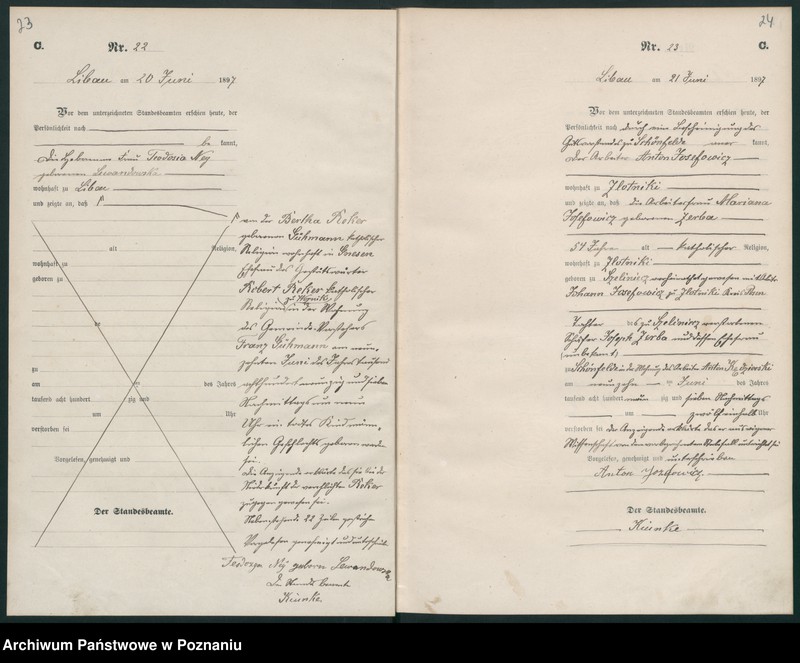 23
C. Nr. 22
Libau am 20 Juni 1897
Vor dem unterzeichneten Standesbeamten erschien heute, der
Persönlichkeit nach
be kannt,
die Hebamme Frau Teodosia Ney
geborenen Lewandowska
wohnhaft zu Libau
und zeigte an, daß
von der Bertha Reker
geborenen Sühmann katholischer
Religion wohnhaft in Gnesen
Ehefrau des
Robert Reker katholischer
Religion in der Wohnung
des Gemeinde-Vorstehers
Franz Sühmann am neun-
zehnten Juni des Jahres tausend
achthundert neunzig und sieben
Nachmittags um neun
Uhr ein todtes Kind männ-
lichen Geschlechts geboren worden
sei.
die Anzeigende erklärte daß sie bei der
Niederkunft der verehelichten Reker
zugegen gewesen sei.
Nebenstehende 22 Zeilen gestrichen
Vorgelesen genehmigt und unterschrieben
alt Religion,
wohnhaft zu
geboren zu
zu
am des Jahres
tausend acht hundert zig und
um Uhr
verstorben sei
Vorgelesen, genehmigt und
Der Standesbeamte.
Teodozya Ney geborn Lewandowska
Der Standesbeamte
Kiunke
24
Nr. 23 C.
Libau am 21 Juni 1897
Vor dem unterzeichneten Standesbeamten erschien heute, der
Persönlichkeit nach durch eine Bescheinigung des
Gutsvorstandes zu Schönfelde aner kannt,
der Arbeiter Anton Josefowicz
wohnhaft zu Zlotniki
und zeigte an, daß die Arbeiterfrau Marianna
Josefowicz geborenen Zerba
54 Jahre alt katholischer Religion,
wohnhaft zu Zlotniki
geboren zu verheirathet gewesen mit
Johann Josefowicz zu Zlotniki Kreis
Tochter des zu verstorbenen
Joseph Zerba und dessen Ehefrau
(unbekannt)
zu Schönfelde in der Wohnung des Arbeiter Anton
am neunzehn ten Juni des Jahres
tausend acht hundert neun zig und sieben Nachmittags
um zwölf einhalb Uhr
verstorben sei der Anzeigende erklärte daß er aus eigener
Wissenschaft von dem vorbezeichneten Sterbefall unterrichtet sei
Vorgelesen, genehmigt und unterschrieben
Anton Jozefowicz
Der Standesbeamte.
Kiunke
Archiwum Państwowe w Poznaniu